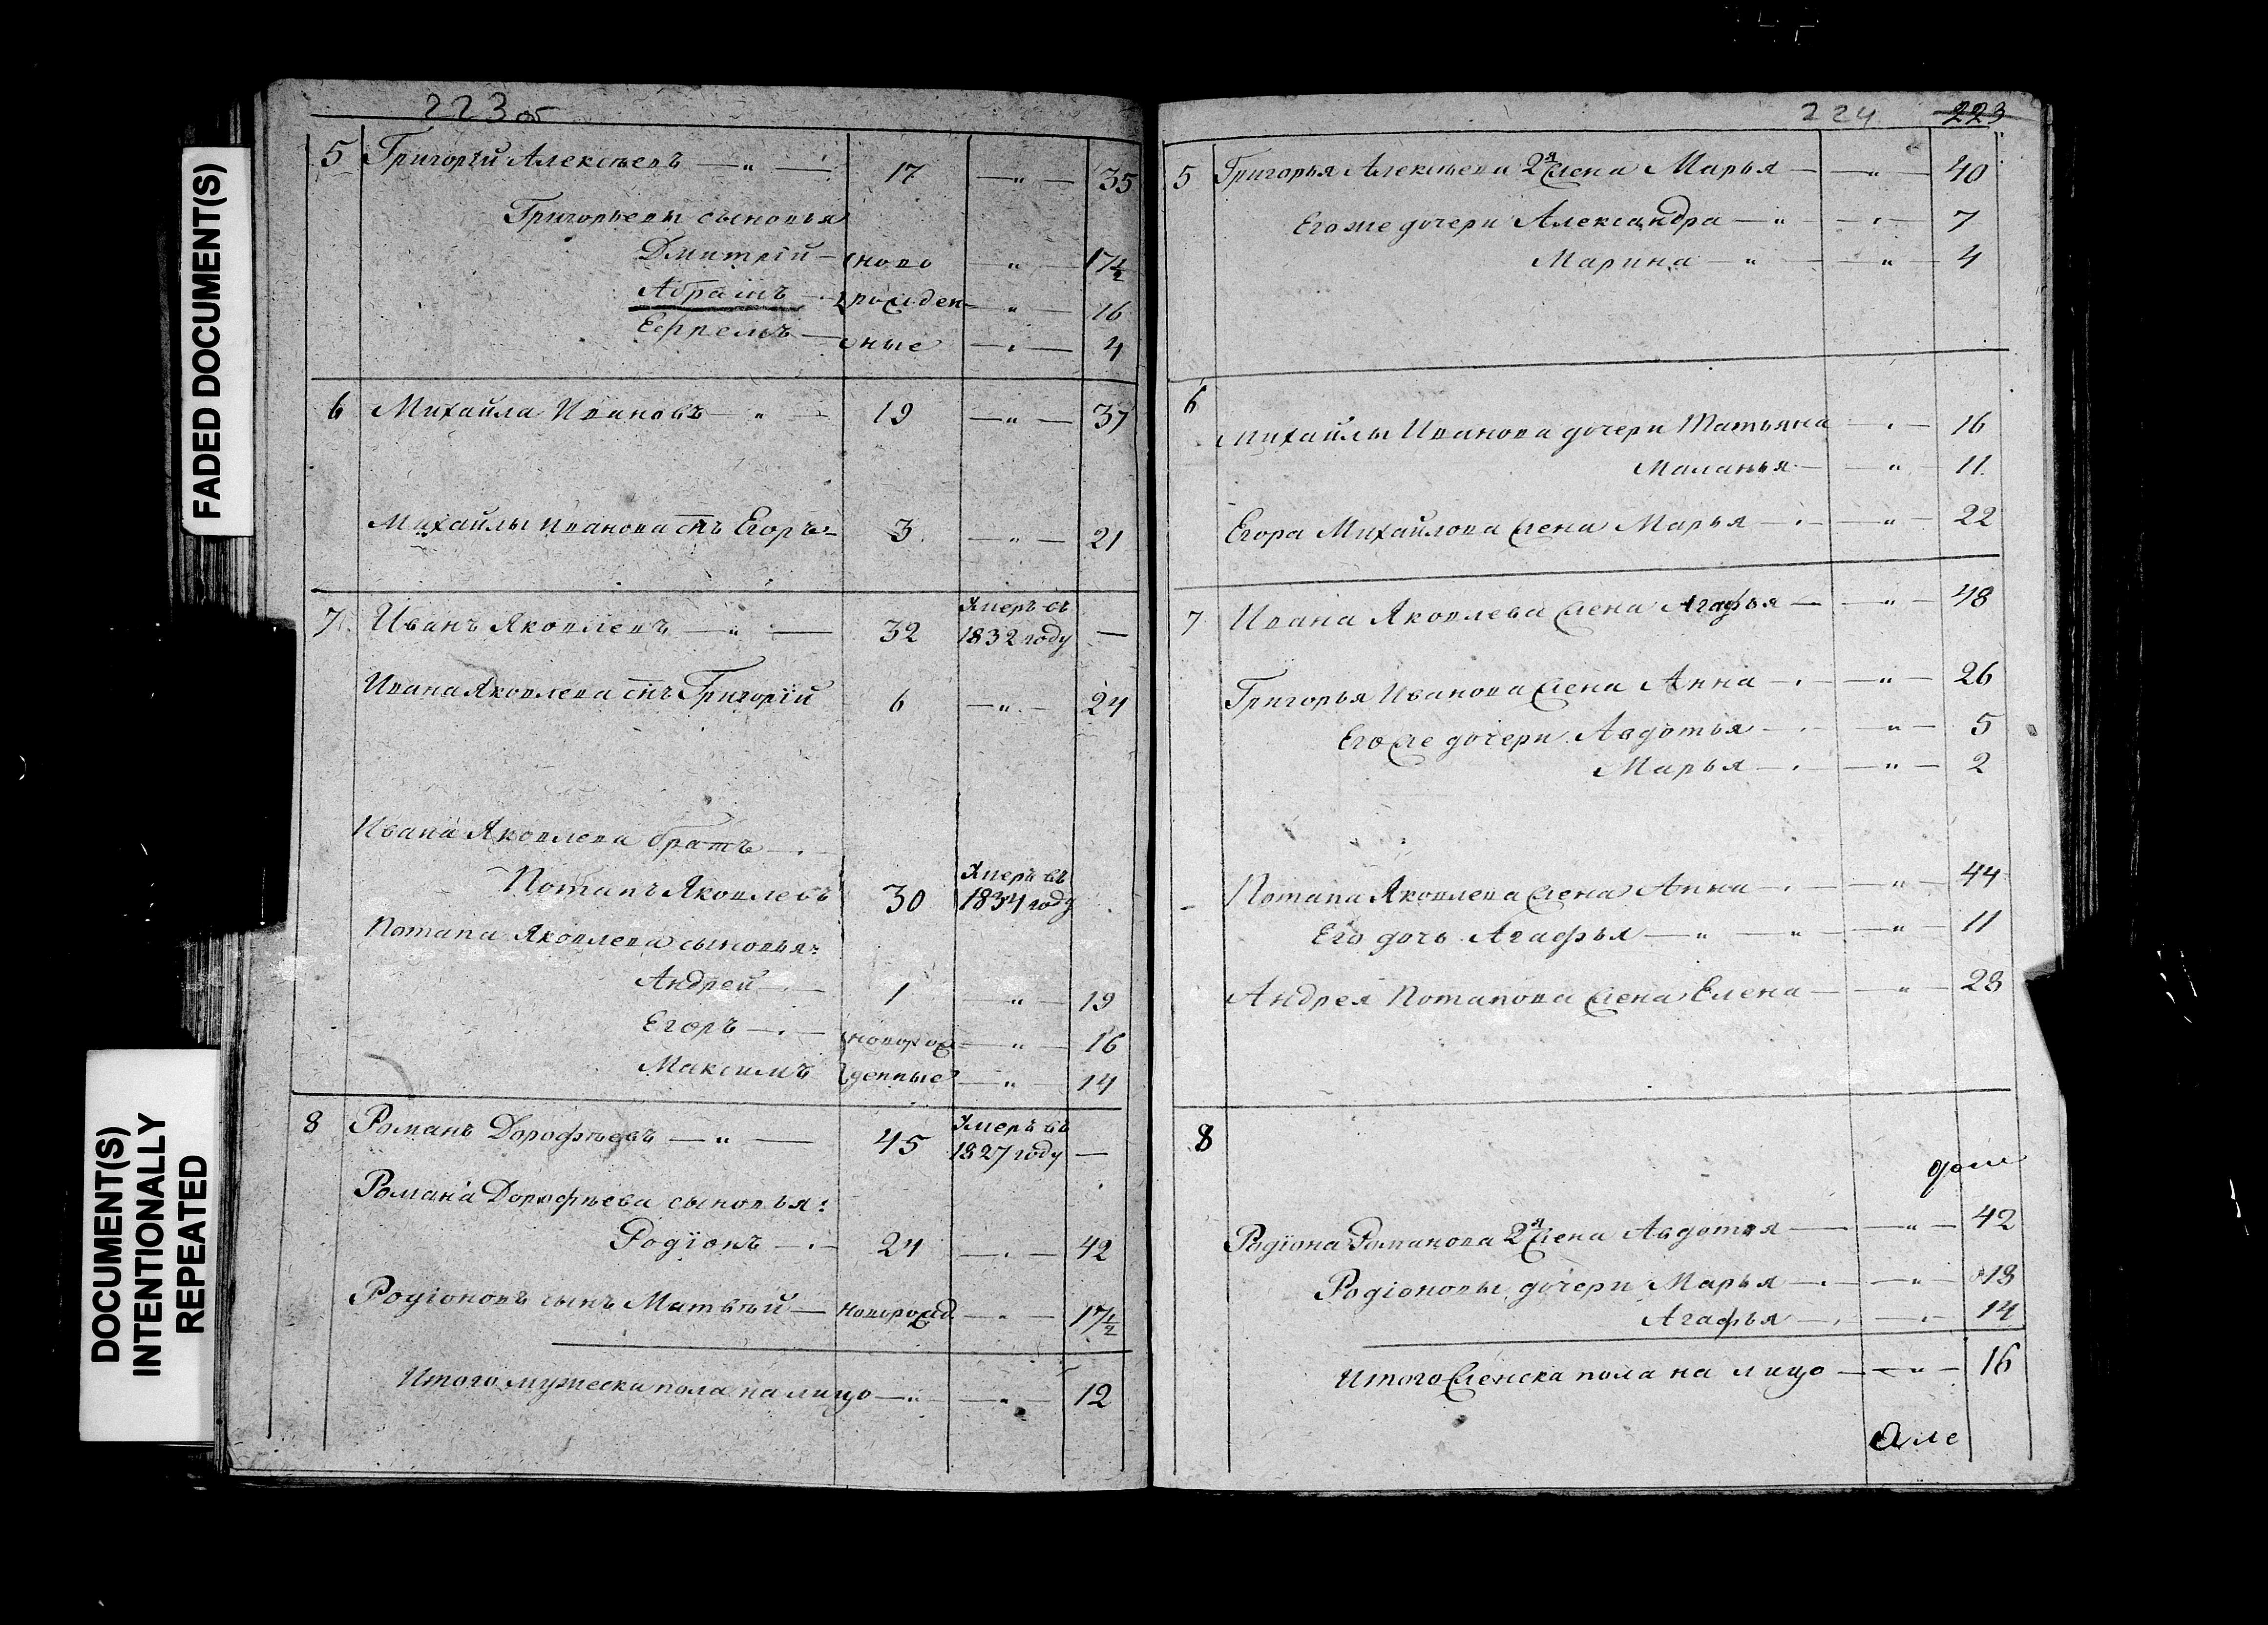 FADED DOCUMENT(S)
DOCUMENT(S)
INTENTIONALLY
REPEATED
223 об
5 Григорій Алексѣевъ — „ — 17 — „ — 35
Григорьевы сыновья
Дмитрій — ново — „ — 17 1/2
Абрамъ — рожден- — „ — 16
Ефремъ — ные — „ — 4
6 Михайла Ивановъ — „ — 19 — „ — 37
Михайлы Иванова снъ Егоръ — 3 — „ — 21
7 Иванъ Яковлевъ — „ — 32 Умеръ въ 1832 году —
Ивана Яковлева снъ Григорій 6 — „ — 24
Ивана Яковлева братъ —
Потапъ Яковлевъ 30 Умеръ въ 1834 году
Потапа Яковлева сыновья:
Андрей — 1 — „ — 19
Егоръ — новорож- — „ — 16
Максимъ денные — „ — 14
8 Романъ Дорофѣевъ — „ — 45 Умеръ въ 1827 году —
Романа Дорофѣева сыновья:
Родіонъ — 24 — „ — 42
Родіоновъ сынъ Матвѣй — новорожд. — „ — 17 1/2
Итого мужеска пола на лицо — „ — „ — 12
224 223
5 Григорья Алексѣева 2я жена Марья — „ — 40
Его же дочери Александра — „ — „ — 7
Марина — „ — „ — 4
6
Михайлы Иванова дочери Татьяна — „ — 16
Маланья — „ — 11
Егора Михайлова жена Марья — „ — 22
7 Ивана Яковлева жена Агафья — „ — 48
Григорья Иванова жена Анна — „ — 26
Его же дочери Авдотья — „ — 5
Марья — „ — 2
Потапа Яковлева жена Анна — „ — 44
Его дочь Агафья — „ — „ — 11
Андрея Потапова жена Елена — „ — 28
8
Родіона Романова 2я жена Авдотья — „ — 42
Родіоновы дочери Марья — „ — 18
Агафья — „ — 14
Итого женска пола на лицо — „ — 16
Але